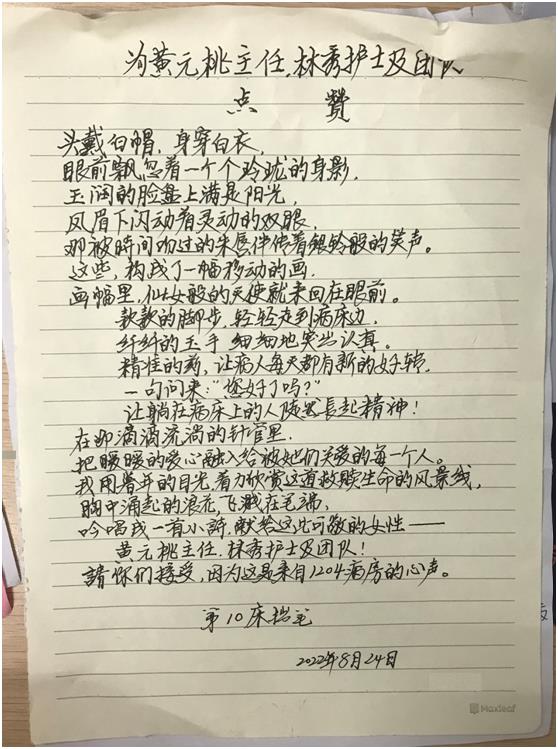 为黄元桃主任.林秀护士及团队
点 赞
头戴白帽，身穿白衣，
眼前飘忽着一个个玲珑的身影，
玉润的脸盘上满是阳光，
凤眉下闪动着灵动的双眼，
那被时间吻过的朱唇伴侍着银铃般的笑声。
这些，构成了一幅移动的画，
画幅里，仙女般的天使就来回在眼前。
款款的脚步，轻轻走到病床边，
纤纤的玉手 细细地突出认真。
精准的药，让病人每天都有新的好转，
一句问来："您好了吗？"
让躺在病床上的人陡长起精神！
在那滴滴流淌的针管里
把暖暖的爱心融入给被她们关爱的每一个人。
我用昏的目光，着力欣赏这道救赎生命的风景线，
胸中涌起的浪花，飞溅在笔端，
吟唱成一首小詩，献给这些可敬的女性——
黄元桃主任.林秀护士及团队！
請你们接受，因为这是来自1204病房的心声。
第10床拙笔
2022年8月24日
Maxleaf